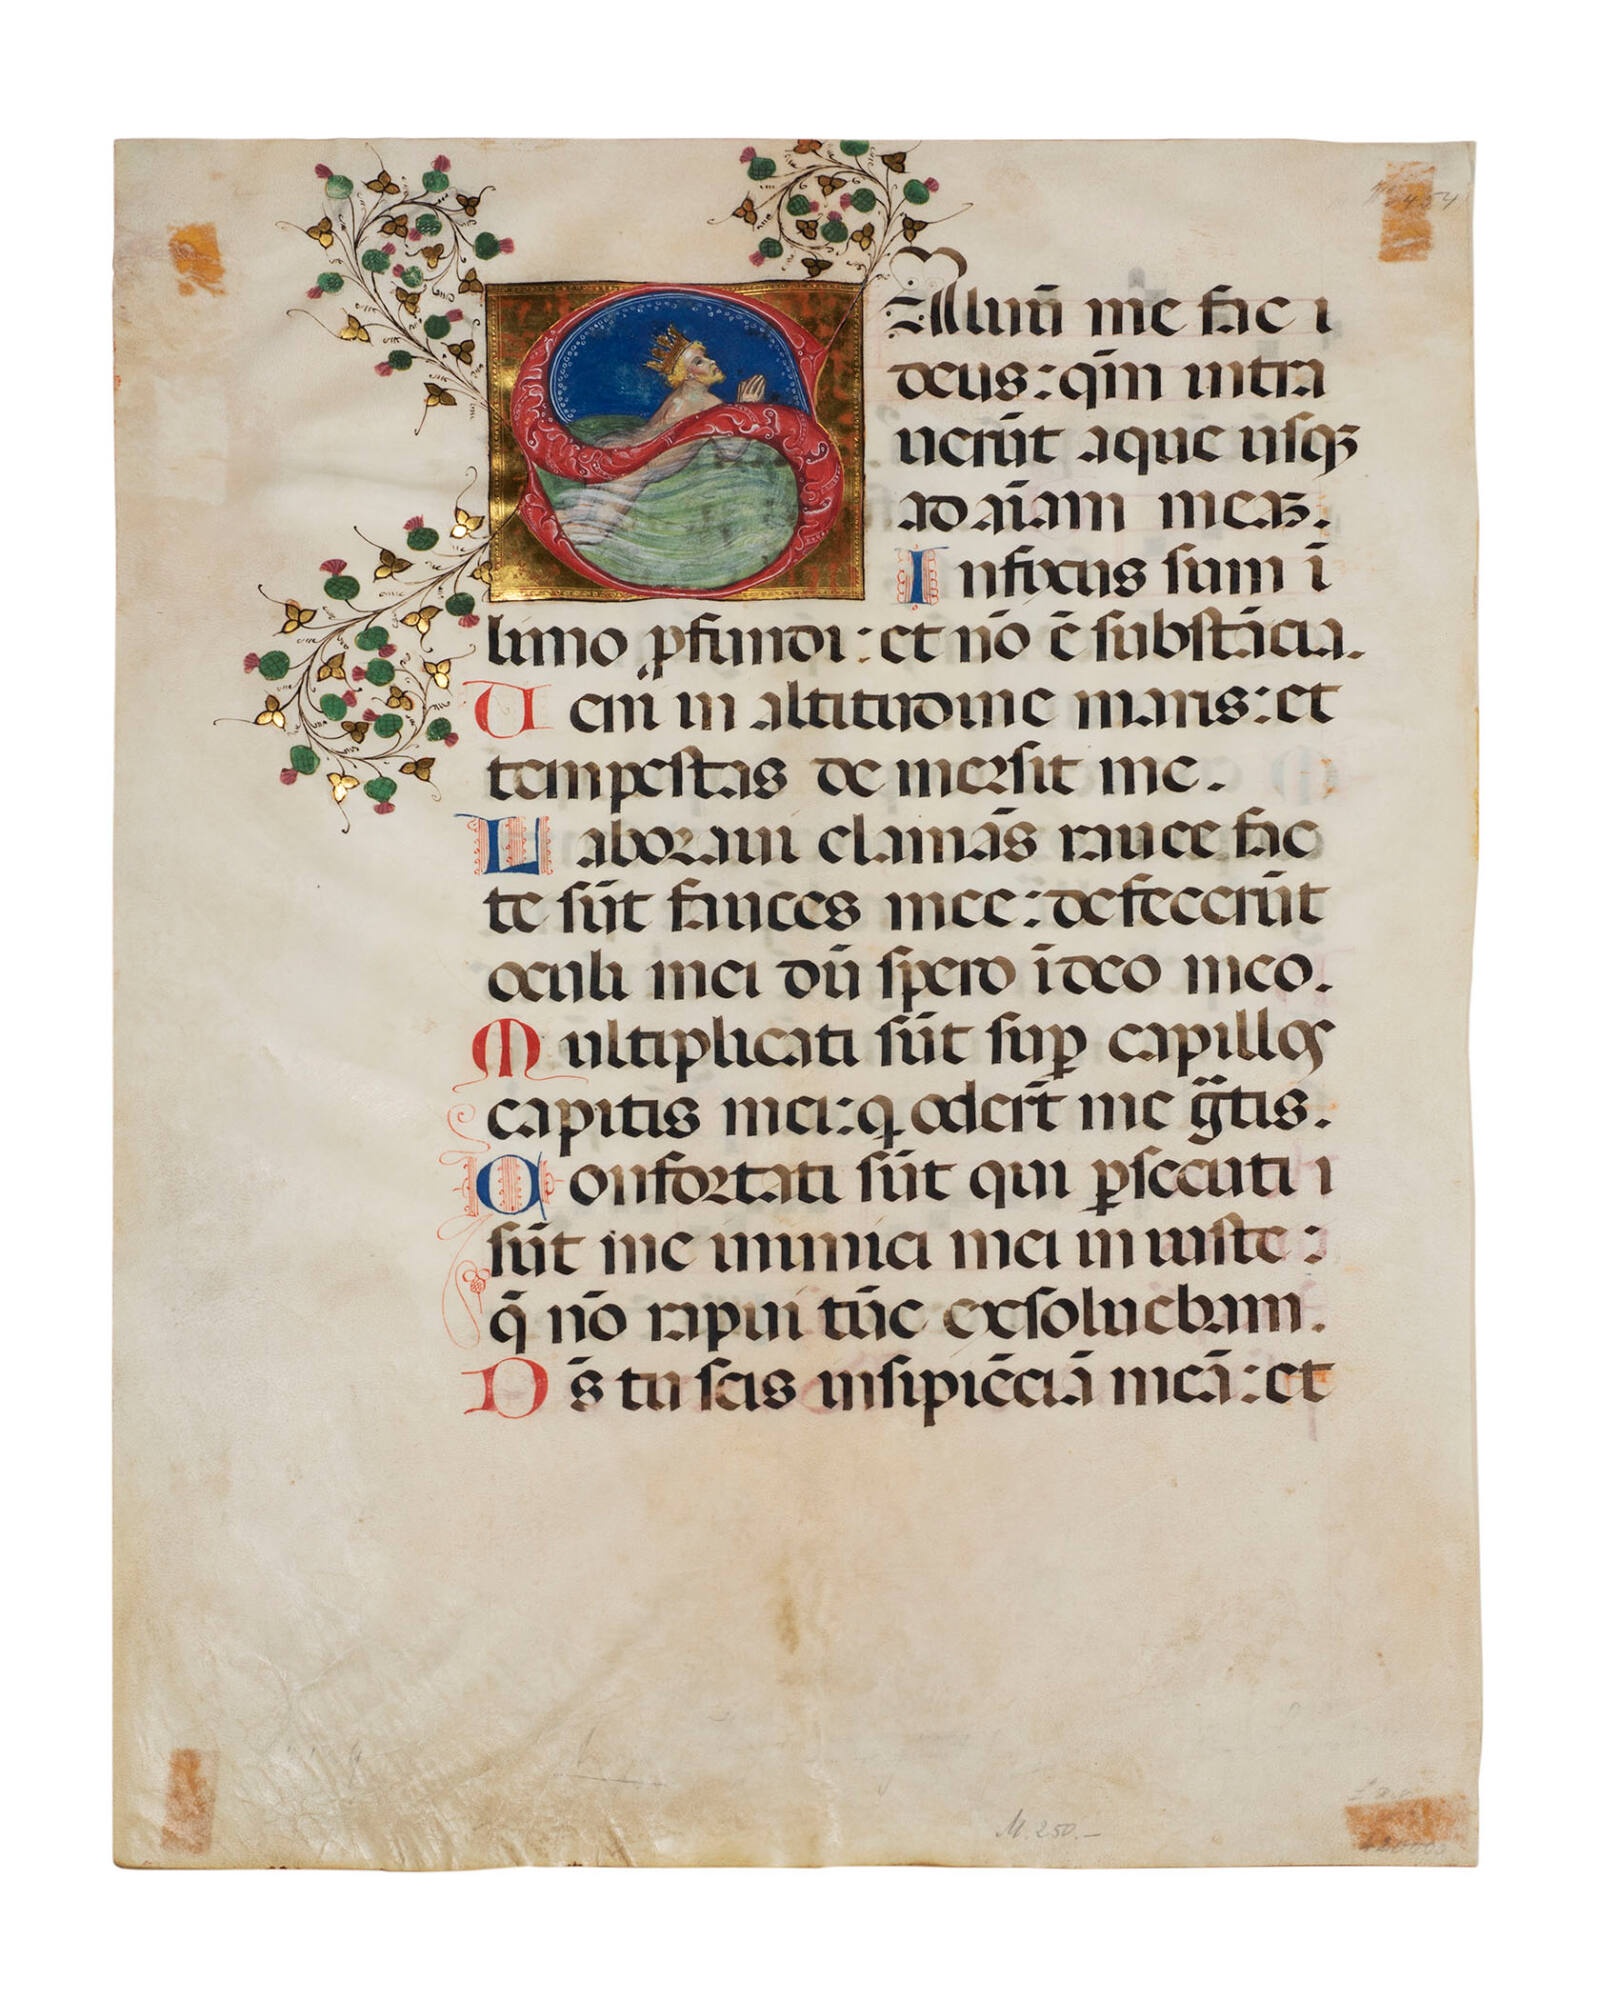 SAluū me fac
deus: qm̄ intra
uerūt aque usqꝫ
ad aīam meaꝫ.
Infixus sum ī
limo ꝓfundi: et nō ē substācia.
Ueni in altitudine maris: et
tempestas de mersit me.
Laboraui clamās rauce fac
te sūt fauces mee: defecerūt
oculi mei dū spero ī deo meo.
Multiplicati sūt suꝑ capillos
capitis mei: q oderūt me gᵃtis.
Confortati sūt qui ꝑsecuti
sūt me inimici mei iniuste:
q̄ nō rapui tūc exsoluebam.
Ds̄ tu scis insipiēciā meā: et
M. 250.—